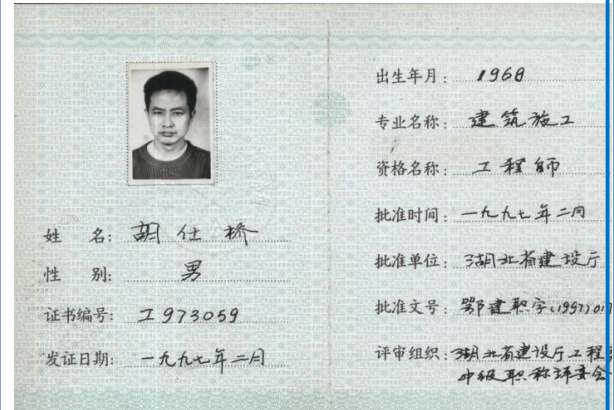 姓 名: 胡仕桥
性 别: 男
证书编号: 工973059
发证日期: 一九九七年二月
出生年月: 1968
专业名称: 建筑施工
资格名称: 工程师
批准时间: 一九九七年二月
批准单位: 湖北省建设厅
批准文号: 鄂建职字(1997)017
评审组织: 湖北省建设厅工程
中级职称评委会